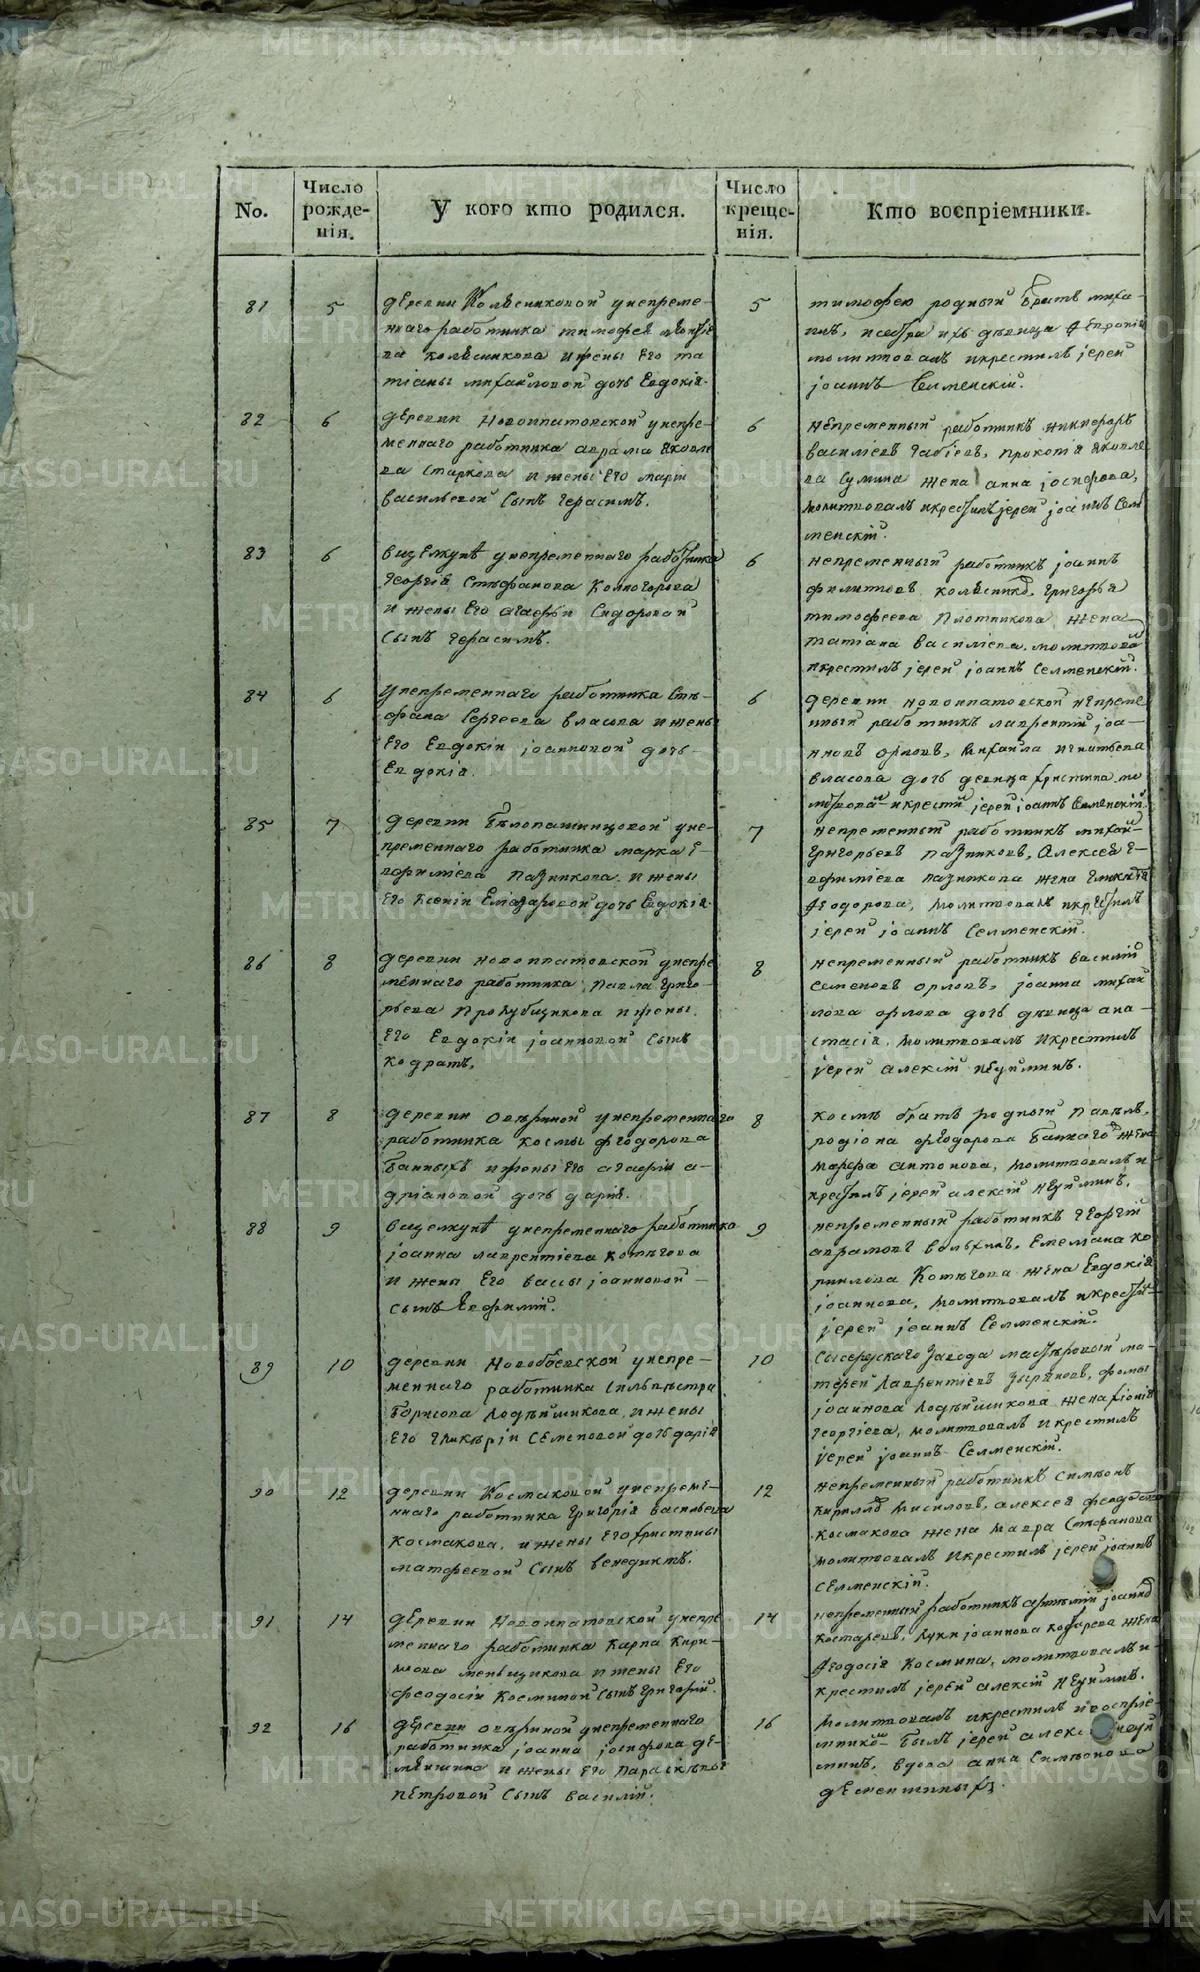 No.
Число рожде-нія.
У кого кто родился.
Число креще-нія.
Кто воспріемники.
81
5
деревни Колясниковой унепреме-
ннаго работника тимофея
ва колясникова ижены Его та
тіаны михайловой дочь Евдокія.
5
тимофею родный братъ миха-
илъ, исестра ихъ дѣвица
молитвовалъ икрестилъ іерей
іоаннъ Селменскій.
82
6
деревни Новоипатовской унепре-
меннаго работника аврама яковле
ва Старкова ижены Его маріи
васильевой Сынъ Герасимъ.
6
непременный работникъ никифоръ
василіевъ прокопія яковле
ва Сумина жена анна іосифова,
молитвовалъ икрестилъ іерей іоаннъ Сел
менскій.
83
6
вщелкунѣ унепременнаго работника
Георгія Стефанова Колмогорова
и жены Его агафьи Сидоровой
Сынъ Герасимъ.
6
непременный работникъ іоаннъ
филиповъ колясниковъ, Григорья
тимофеева Плотникова жена
татіана василіева. молитвовалъ
икрестилъ іерей іоаннъ Селменскій.
84
6
Унепременнаго работника Сте-
фана Сергеева власова ижены
Его Евдокіи іоанновой дочь
Евдокія.
6
деревни новоипатовской непреме
нный работникъ лаврентій іоа-
нновъ орловъ, михайла игнатьева
власова дочь девица христина мо
литвовалъ икрестилъ іерей іоаннъ Селменскій.
85
7
деревни Белопашинцовой уне-
пременнаго работника марка Е-
вфиміева пазникова ижены
Его Ксеніи Еліазаровой дочь Евдокія.
7
непременный работникъ михайло
Григорьевъ пазниковъ, Алексея Е-
вфиміева пазникова жена Гликерія
Феодорова, молитвовалъ икрестилъ
іерей іоаннъ Селменскій.
86
8
деревни новоипатовской унепре
меннаго работника павла Григо-
рьева ижены
Его Евдокіи іоанновой Сынъ
кодратъ.
8
непременный работникъ василій
Семеновъ орловъ, іоанна михай
лова орлова дочь дѣвица ана-
стасія. молитвовалъ икрестилъ
іерей алексій Неуйминъ.
87
8
деревни унепременнаго
работника космы феодорова
Банныхъ ижены Его агафіи а-
дріановой дочь дарія.
8
космѣ братъ родный павелъ,
родіона феодорова Баннаго жена
марфа антонова, молитвовалъ и
крестилъ іерей алексій Неуйминъ.
88
9
вщелкунѣ унепременнаго работника
іоанна лаврентіева котѣгова
и жены Его вассы іоанновой
сынъ Евфимій.
9
непременный работникъ Георгій
аврамовъ Емеліана ко
рнилова Котѣгова жена Евдокія
іоаннова, молитвовалъ икрестилъ
іерей іоаннъ Селменскій.
89
10
деревни Новобоевской унепре-
меннаго работника Сильвѣстра
Борисова Лодѣйщикова ижены
Его Гликѣріи Семеновой дочь дарія
10
Сысерцкаго Завода мастѣровый ма-
тфей Лаврентіевъ Зыряновъ, фомы
іоаннова Лодѣйщикова жена фіонія
георгіева, молитвовалъ икрестилъ
іерей іоаннъ Селменскій.
90
12
деревни Космаковой унепреме-
ннаго работника Григорія васильева
космакова, ижены Его христины
матфеевой Сынъ венедиктъ.
12
непременный работникъ Симеонъ
кирилловъ алексея феодотова
космакова жена мавра Стефанова
молитвовалъ икрестилъ іерей іоаннъ
Селменскій.
91
14
деревни Новоипатовской унепре
меннаго работника карпа Кири-
лова меньщикова ижены Его
феодосіи Косминой Сынъ Григорій.
14
непременный работникъ артемій іоанновъ
костаревъ, луки іоаннова жена
Феодосія Космина, молитвовалъ и
крестилъ іерей алексій Неуйминъ.
92
16
деревни унепременнаго
работника іоанна іосифова де-
ментьина и жены Его параскевы
петровой Сынъ василій.
16
молитвовалъ икрестилъ ивоспріе-
мникомъ былъ іерей неуй
минъ, вдова анна Симеонова
дементьиныхъ.